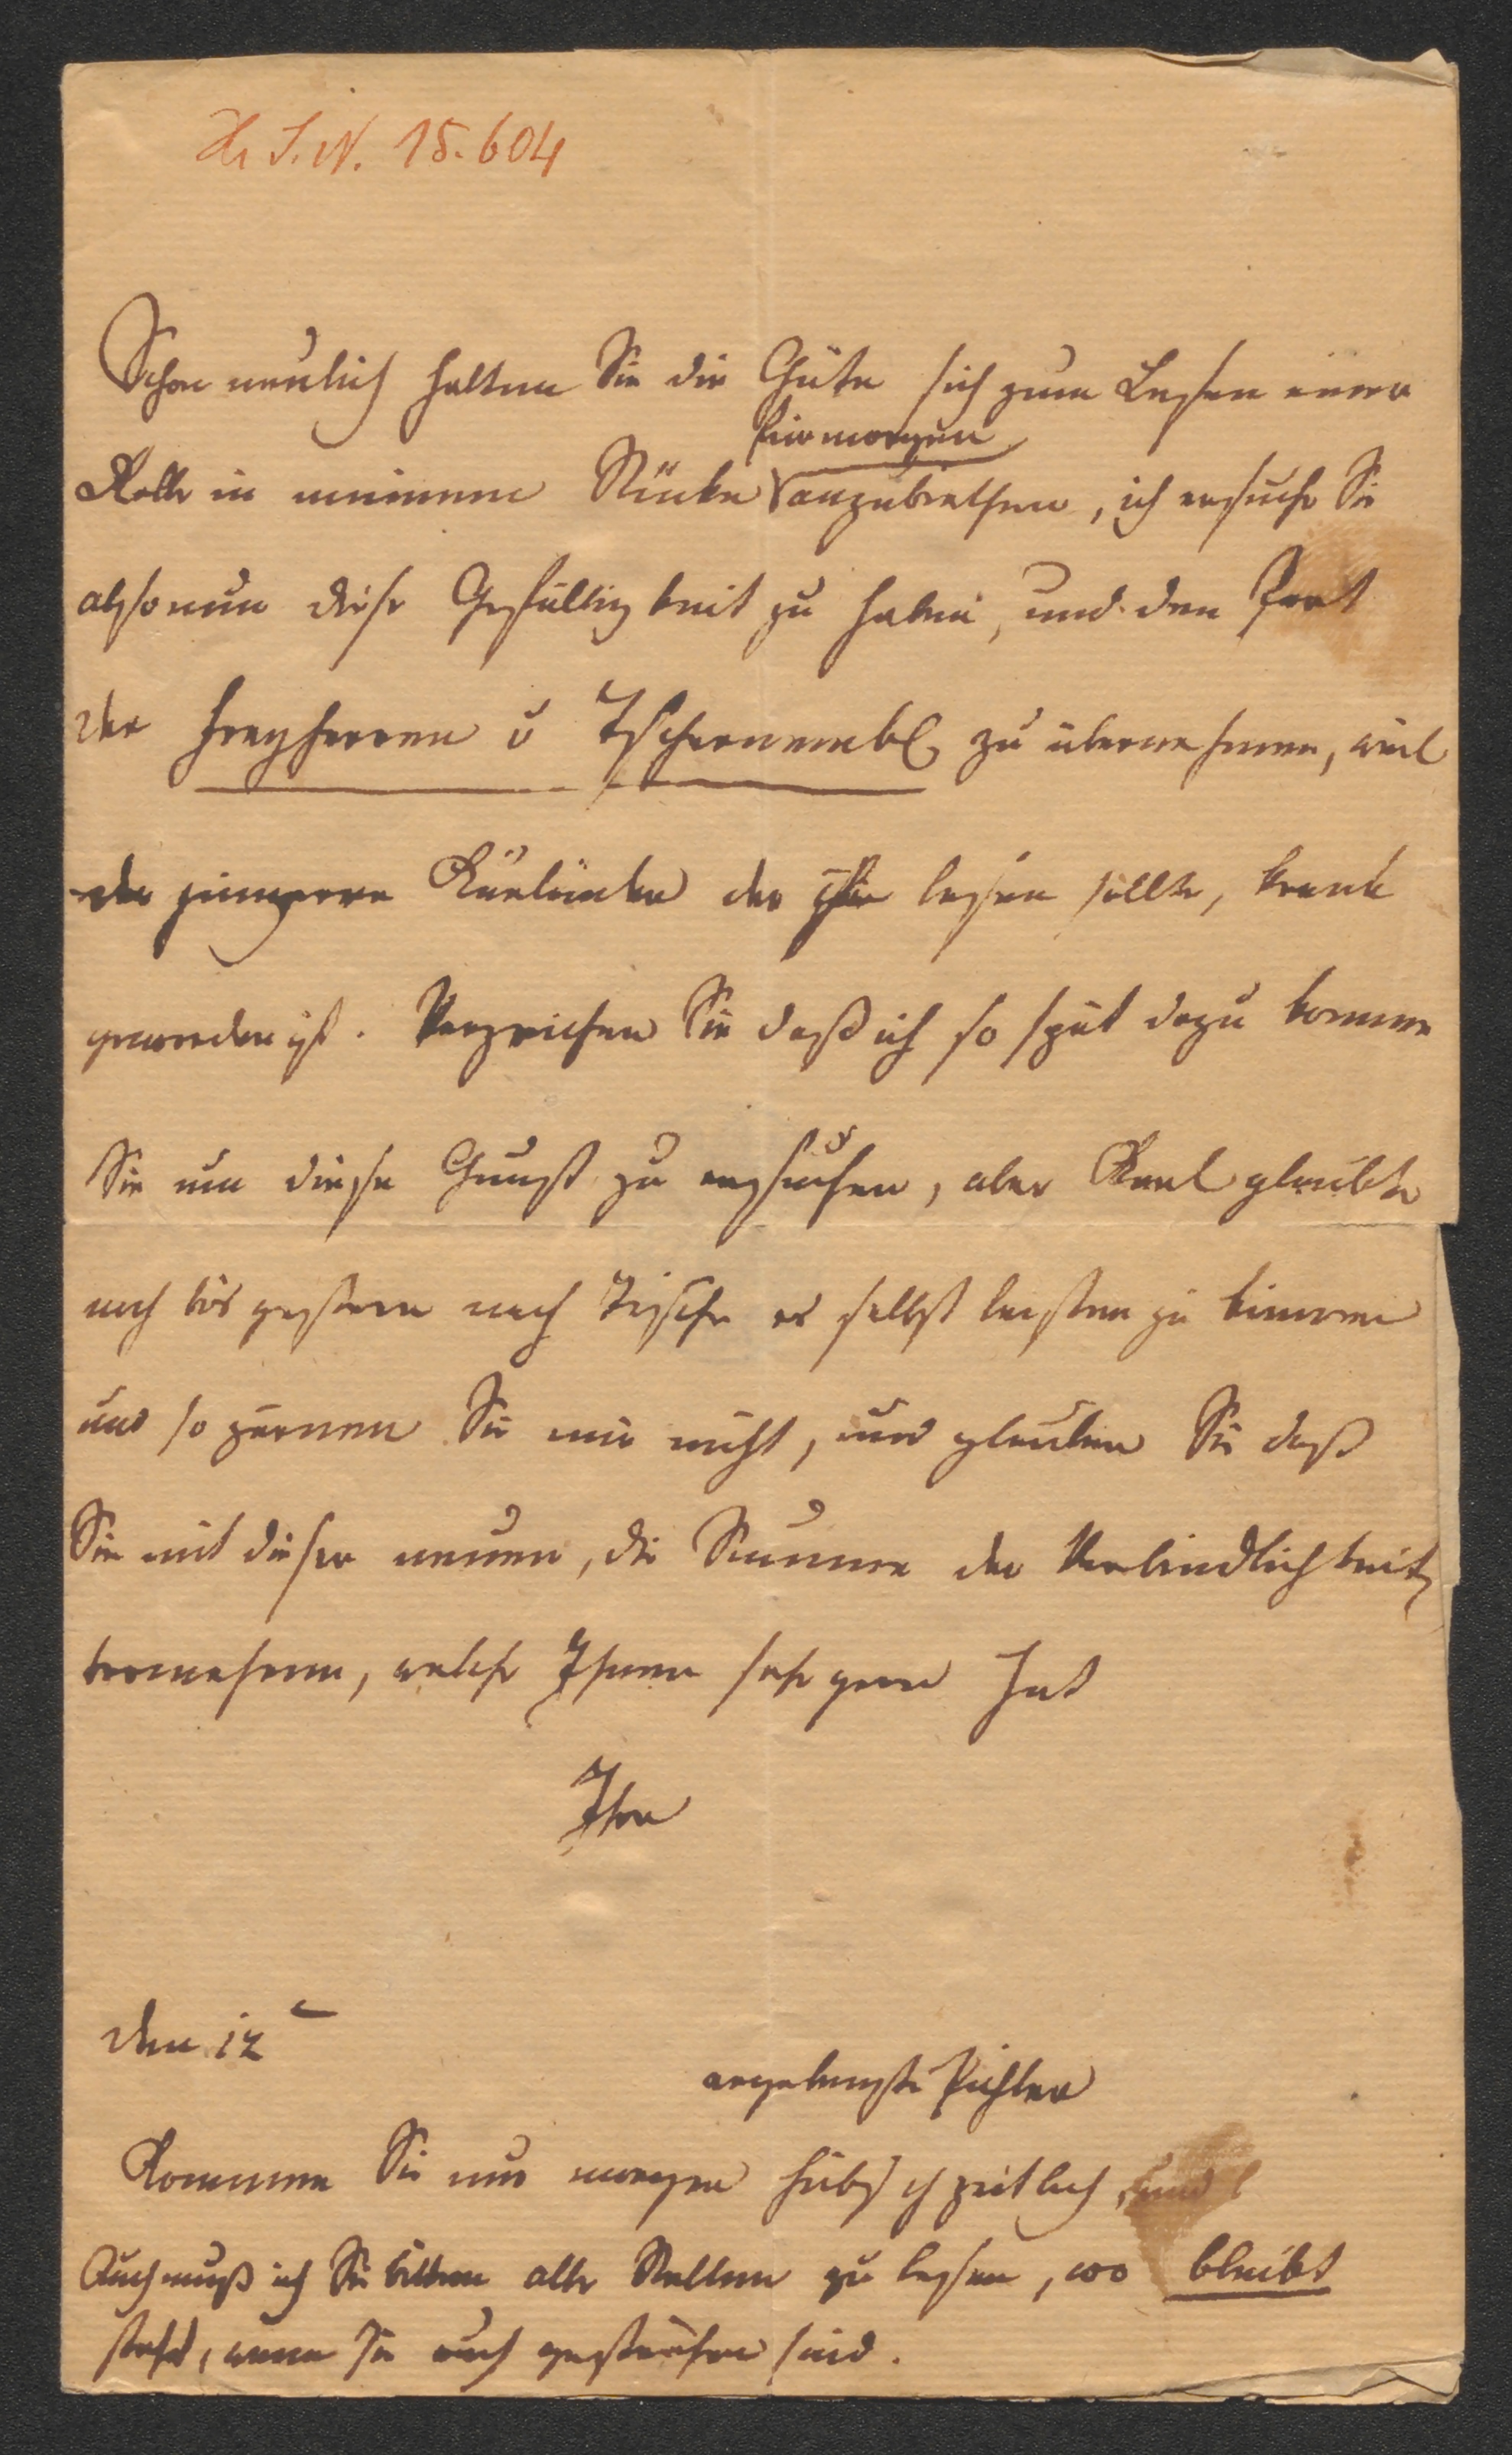 H. I. N. 15.604
Schon neulich hatten Sie die Güte sich zum Lesen einer
für morgen
Rolle in meinem Stücke anzubiethen, ich ersuche Sie
also nun diese Gefälligkeit zu haben, und den Part
des Freyherren v Tschernembl zu übernehmen, weil
der jüngere Kurländer der ihn lesen sollte, krank
geworden ist. Verzeihen Sie daß ich so spät dazu komme
Sie um diese Gunst zu ersuchen, aber Karl glaubte
noch bis gestern nach Tische es selbst leisten zu können
und so zürnen Sie mir nicht, und glauben Sie daß
Sie mit dieser neuen, die Summe der Verbindlichkeit
vermehren, welche Ihnen sehr gern hat
Ihre
den 12
ergebenste Pichler
Kommen Sie nur morgen hübsch zeitlich, und
Auch muß ich Sie bitten alle Stellen zu lesen, wo bleibt
steht, wenn sie auch gestrichen sind.